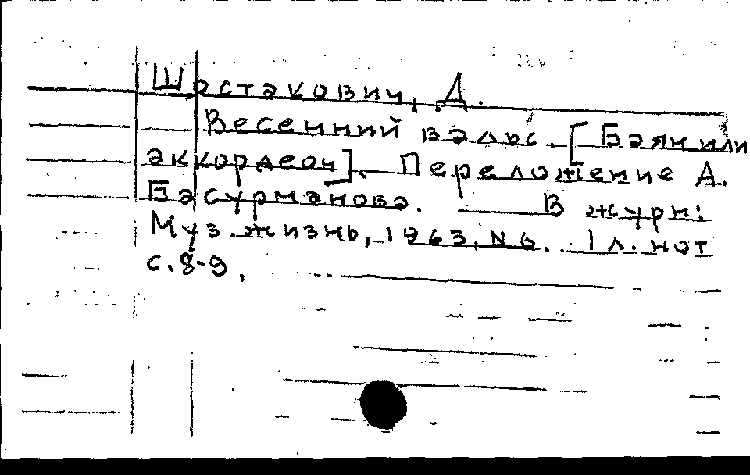 Шостакович, Д.
Весенний вальс. [Баян или
аккордеон]. Переложение А.
Басурманова. В журн:
Муз. жизнь, 1963, N6. 1 л. нот
с. 8-9.